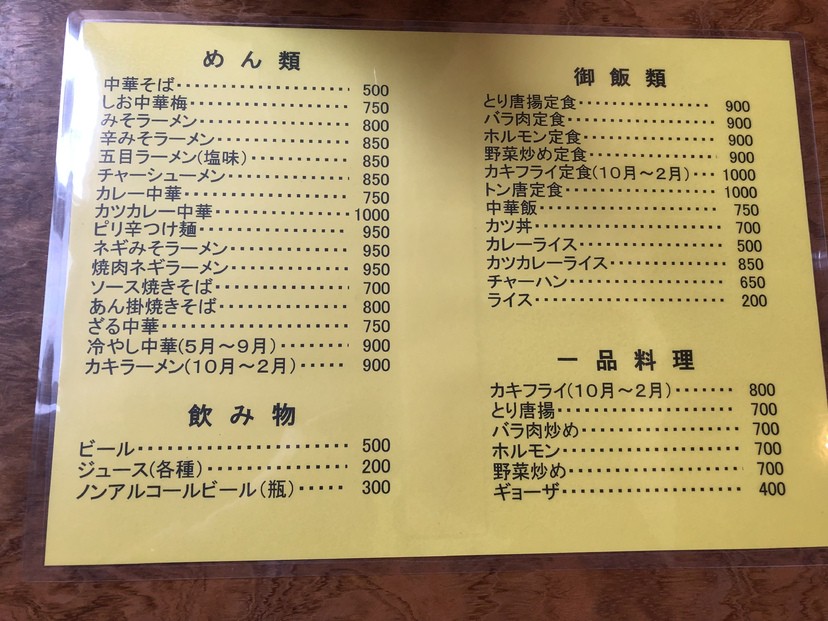 めん類
中華そば・・・・・・・・・・・・・・・・・・500
しお中華梅・・・・・・・・・・・・・・・・・750
みそラーメン・・・・・・・・・・・・・・・・800
辛みそラーメン・・・・・・・・・・・・・・・850
五目ラーメン(塩味)・・・・・・・・・・・・850
チャーシューメン・・・・・・・・・・・・・・850
カレー中華・・・・・・・・・・・・・・・・・750
カツカレー中華・・・・・・・・・・・・・・・1000
ピリ辛つけ麺・・・・・・・・・・・・・・・・950
ネギみそラーメン・・・・・・・・・・・・・・950
焼肉ネギラーメン・・・・・・・・・・・・・・950
ソース焼きそば・・・・・・・・・・・・・・・700
あん掛焼きそば・・・・・・・・・・・・・・・800
ざる中華・・・・・・・・・・・・・・・・・・750
冷やし中華(5月～9月)・・・・・・・・・900
カキラーメン(10月～2月)・・・・・・・900
飲み物
ビール・・・・・・・・・・・・・・・・・・・500
ジュース(各種)・・・・・・・・・・・・・・200
ノンアルコールビール(瓶)・・・・・300
御飯類
とり唐揚定食・・・・・・・・・・・・・・・・900
バラ肉定食・・・・・・・・・・・・・・・・・900
ホルモン定食・・・・・・・・・・・・・・・・900
野菜炒め定食・・・・・・・・・・・・・・・・900
カキフライ定食(10月～2月)・・・1000
トン唐定食・・・・・・・・・・・・・・・・・1000
中華飯・・・・・・・・・・・・・・・・・・・750
カツ丼・・・・・・・・・・・・・・・・・・・700
カレーライス・・・・・・・・・・・・・・・・500
カツカレーライス・・・・・・・・・・・・・・850
チャーハン・・・・・・・・・・・・・・・・・650
ライス・・・・・・・・・・・・・・・・・・・200
一品料理
カキフライ(10月～2月)・・・・・・・800
とり唐揚・・・・・・・・・・・・・・・・・・700
バラ肉炒め・・・・・・・・・・・・・・・・・700
ホルモン・・・・・・・・・・・・・・・・・・700
野菜炒め・・・・・・・・・・・・・・・・・・700
ギョーザ・・・・・・・・・・・・・・・・・・400